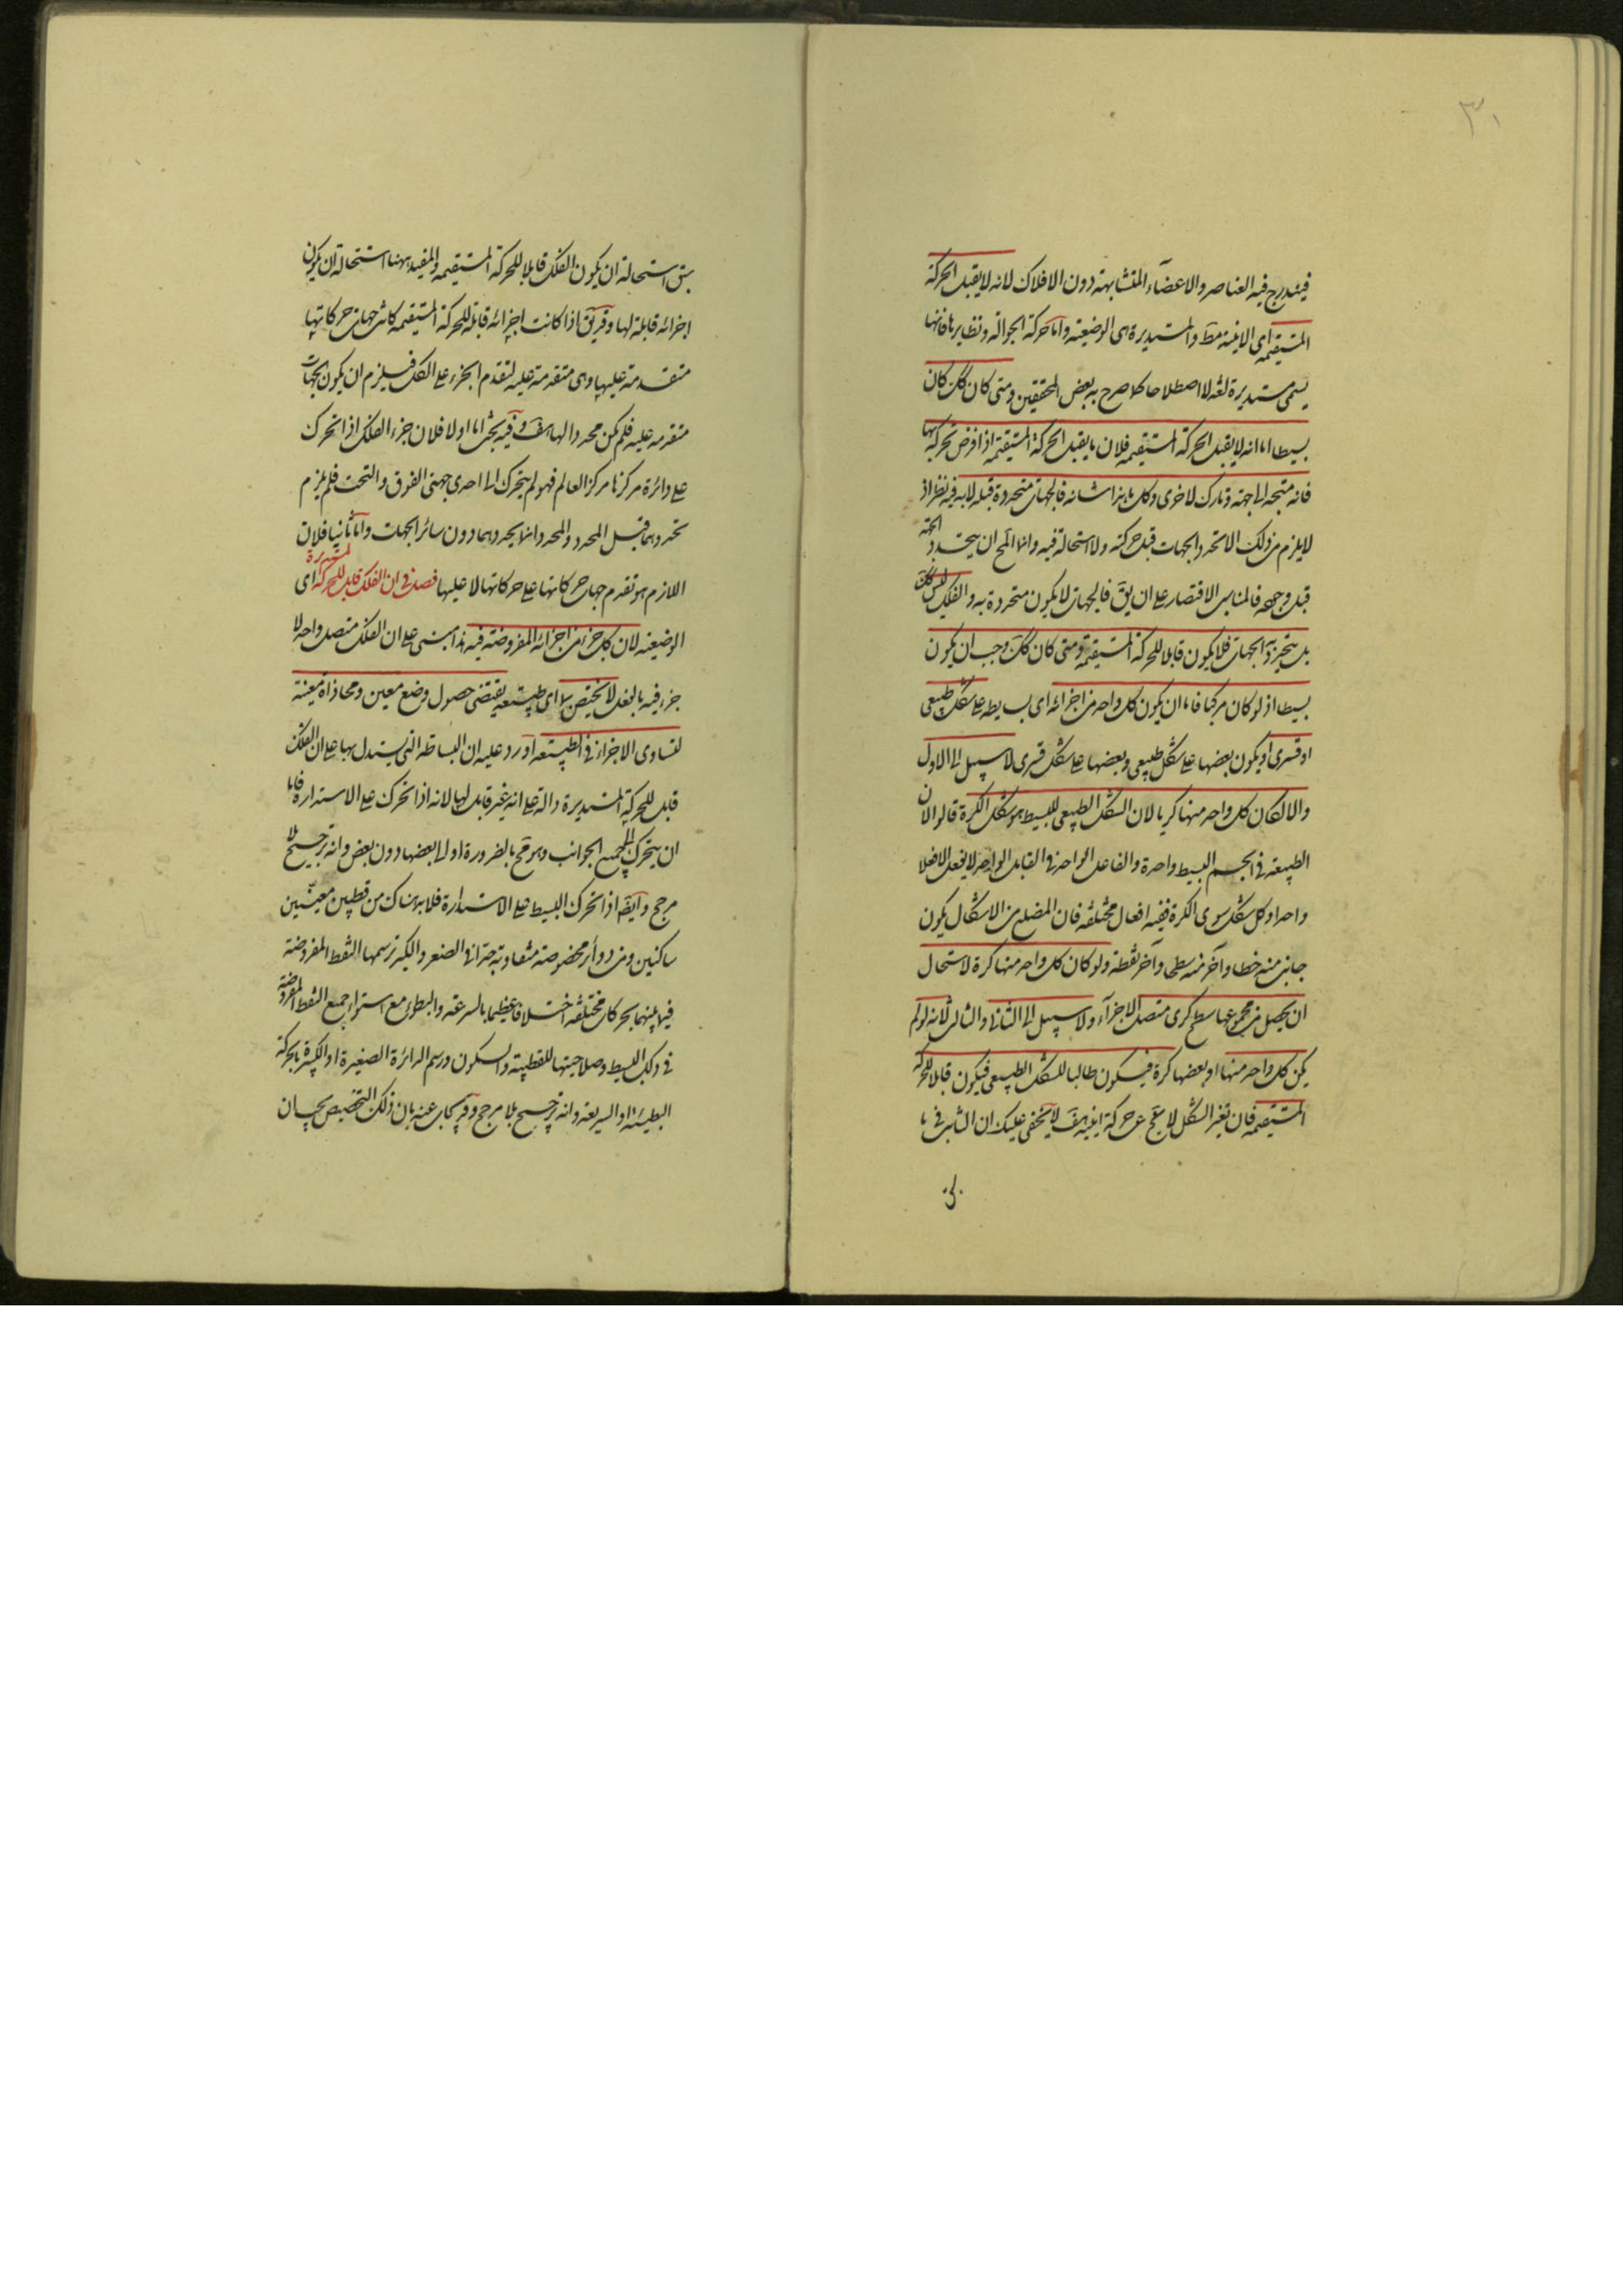 ٣١
فيندرج فيه العناصر والاعضآء المتشابهة دون الافلاك لانه لا يقبل الحركة
المستقيمة اى الاينية مط والمستديرة اى الوضعية واما حركة الجوالة ونظايرها فانها
يسمى مستديرة لغة لا اصطلاحا كما صرح به بعض المحققين ومتى كان كك كان
بسيطا اما انه لا يقبل الحركة المستقيمة فلان ما يقبل الحركة المستقيمة اذا فرض تحركه بها
فانه متجه الى جهة وتارك لاخرى وكل ما هذا شانه فالجهات متحددة قبله لا به فيه نظر اذ
لا يلزم من ذلك الا تحدد الجهات قبل حركته ولا استحالة فيه وانما المح ان يتحدد الجهة
قبل وجوده فالمناسب الاقتصار على ان يق فالجهات لا يكون متحددة به والفلك ليس كك
بل يتحدد به الجهات فلا يكون قابلا للحركة المستقيمة ومتى كان كك وجب ان يكون
بسيطا اذ لو كان مركبا فاما ان يكون كل واحد من اجزائه اى بسايطه على شكل طبيعى
او قسرى او يكون بعضها على شكل طبيعى وبعضها على شكل قسرى لا سبيل الى الاول
والا لكان كل واحد منها كريا لان الشكل الطبيعى للبسيط هو شكل الكرة قالوا لان
الطبيعة فى الجسم البسيط واحدة والفاعل الواحد فى القابل الواحد لا يفعل الا فعلا
واحدا وكل شكل سوى الكرة ففيه افعال مختلفة فان المضلع من الاشكال يكون
جانب منه خطا وآخر منه سطحا وآخر نقطة ولو كان كل واحد منها كرة لاستحال
ان يحصل من مجموعها سطح كرى متصل الاجزآء ولا سبيل الى الثانى والثالث لانه لو لم
يكن كل واحد منها او بعضها كرة فيكون طالبا للشكل الطبيعى فيكون قابلا للحركة
المستقيمة فان تغير الشكل لا يقع عن حركة اينية هف لا يخفى عليك ان الثابت فى ما
سبق استحالة ان يكون الفلك قابلا للحركة المستقيمة والمفيد ههنا استحالة ان يكون
اجزائه قابلة لها وقد يق اذا كانت اجزائه قابلة للحركة المستقيمة كانت جهات حركاتها
متقدمة عليها وهى متقدمة عليه لتقدم الجزء على الكل فيلزم ان يكون الجهات
متقدمة عليه فلم يكن محددا لها هف وفيه بحث اما اولا فلان جزء الفلك اذا تحرك
على دائرة مركزها مركز العالم فهو لم يتحرك الى احدى جهتى الفوق والتحت فلم يلزم
تحددهما قبل المحدد والمحدد انما يحددهما دون سائر الجهات واما ثانيا فلان
اللازم هو تقدم جهات حركاتها على حركاتها لا عليها فصل فى ان الفلك قابل للحركة المستديرة اى
الوضعية لان كل جزء من اجزائه المفروضة فيه هذا مبنى على ان الفلك متصل واحد لا
جزء فيه بالفعل لا يختص بما اى طبيعة يقتضى حصول وضع معين ومحاذاة معينة
لتساوى الاجزاء فى الطبيعة اورد عليه ان البساطة التى يستدل بها على ان الفلك
قابل للحركة المستديرة دالة على انه غير قابل لها لانه اذا تحرك على الاستدارة فاما
ان يتحرك الى جميع الجوانب وهو مح بالضرورة او الى بعضها دون بعض وانه ترجيح بلا
مرجح وايضا اذا تحرك البسيط على الاستدارة فلا بد هناك من قطبين معينين
ساكنين ومن دوائر مخصوصة متفاوتة جدا فى الصغر والكبر ترسمها النقط المفروضة
فيما بينهما بحركات مختلفة اختلافا عظيما بالسرعة والبطوء مع استواء جميع النقط المفروضة
فى ذلك البسيط وصلاحيتها للقطبية والسكون ورسم الدائرة الصغيرة او الكبيرة بالحركة
البطيئة او السريعة وانه ترجيح بلا مرجح وقد يجاب عنه بان ذلك التخصيص يجب ان